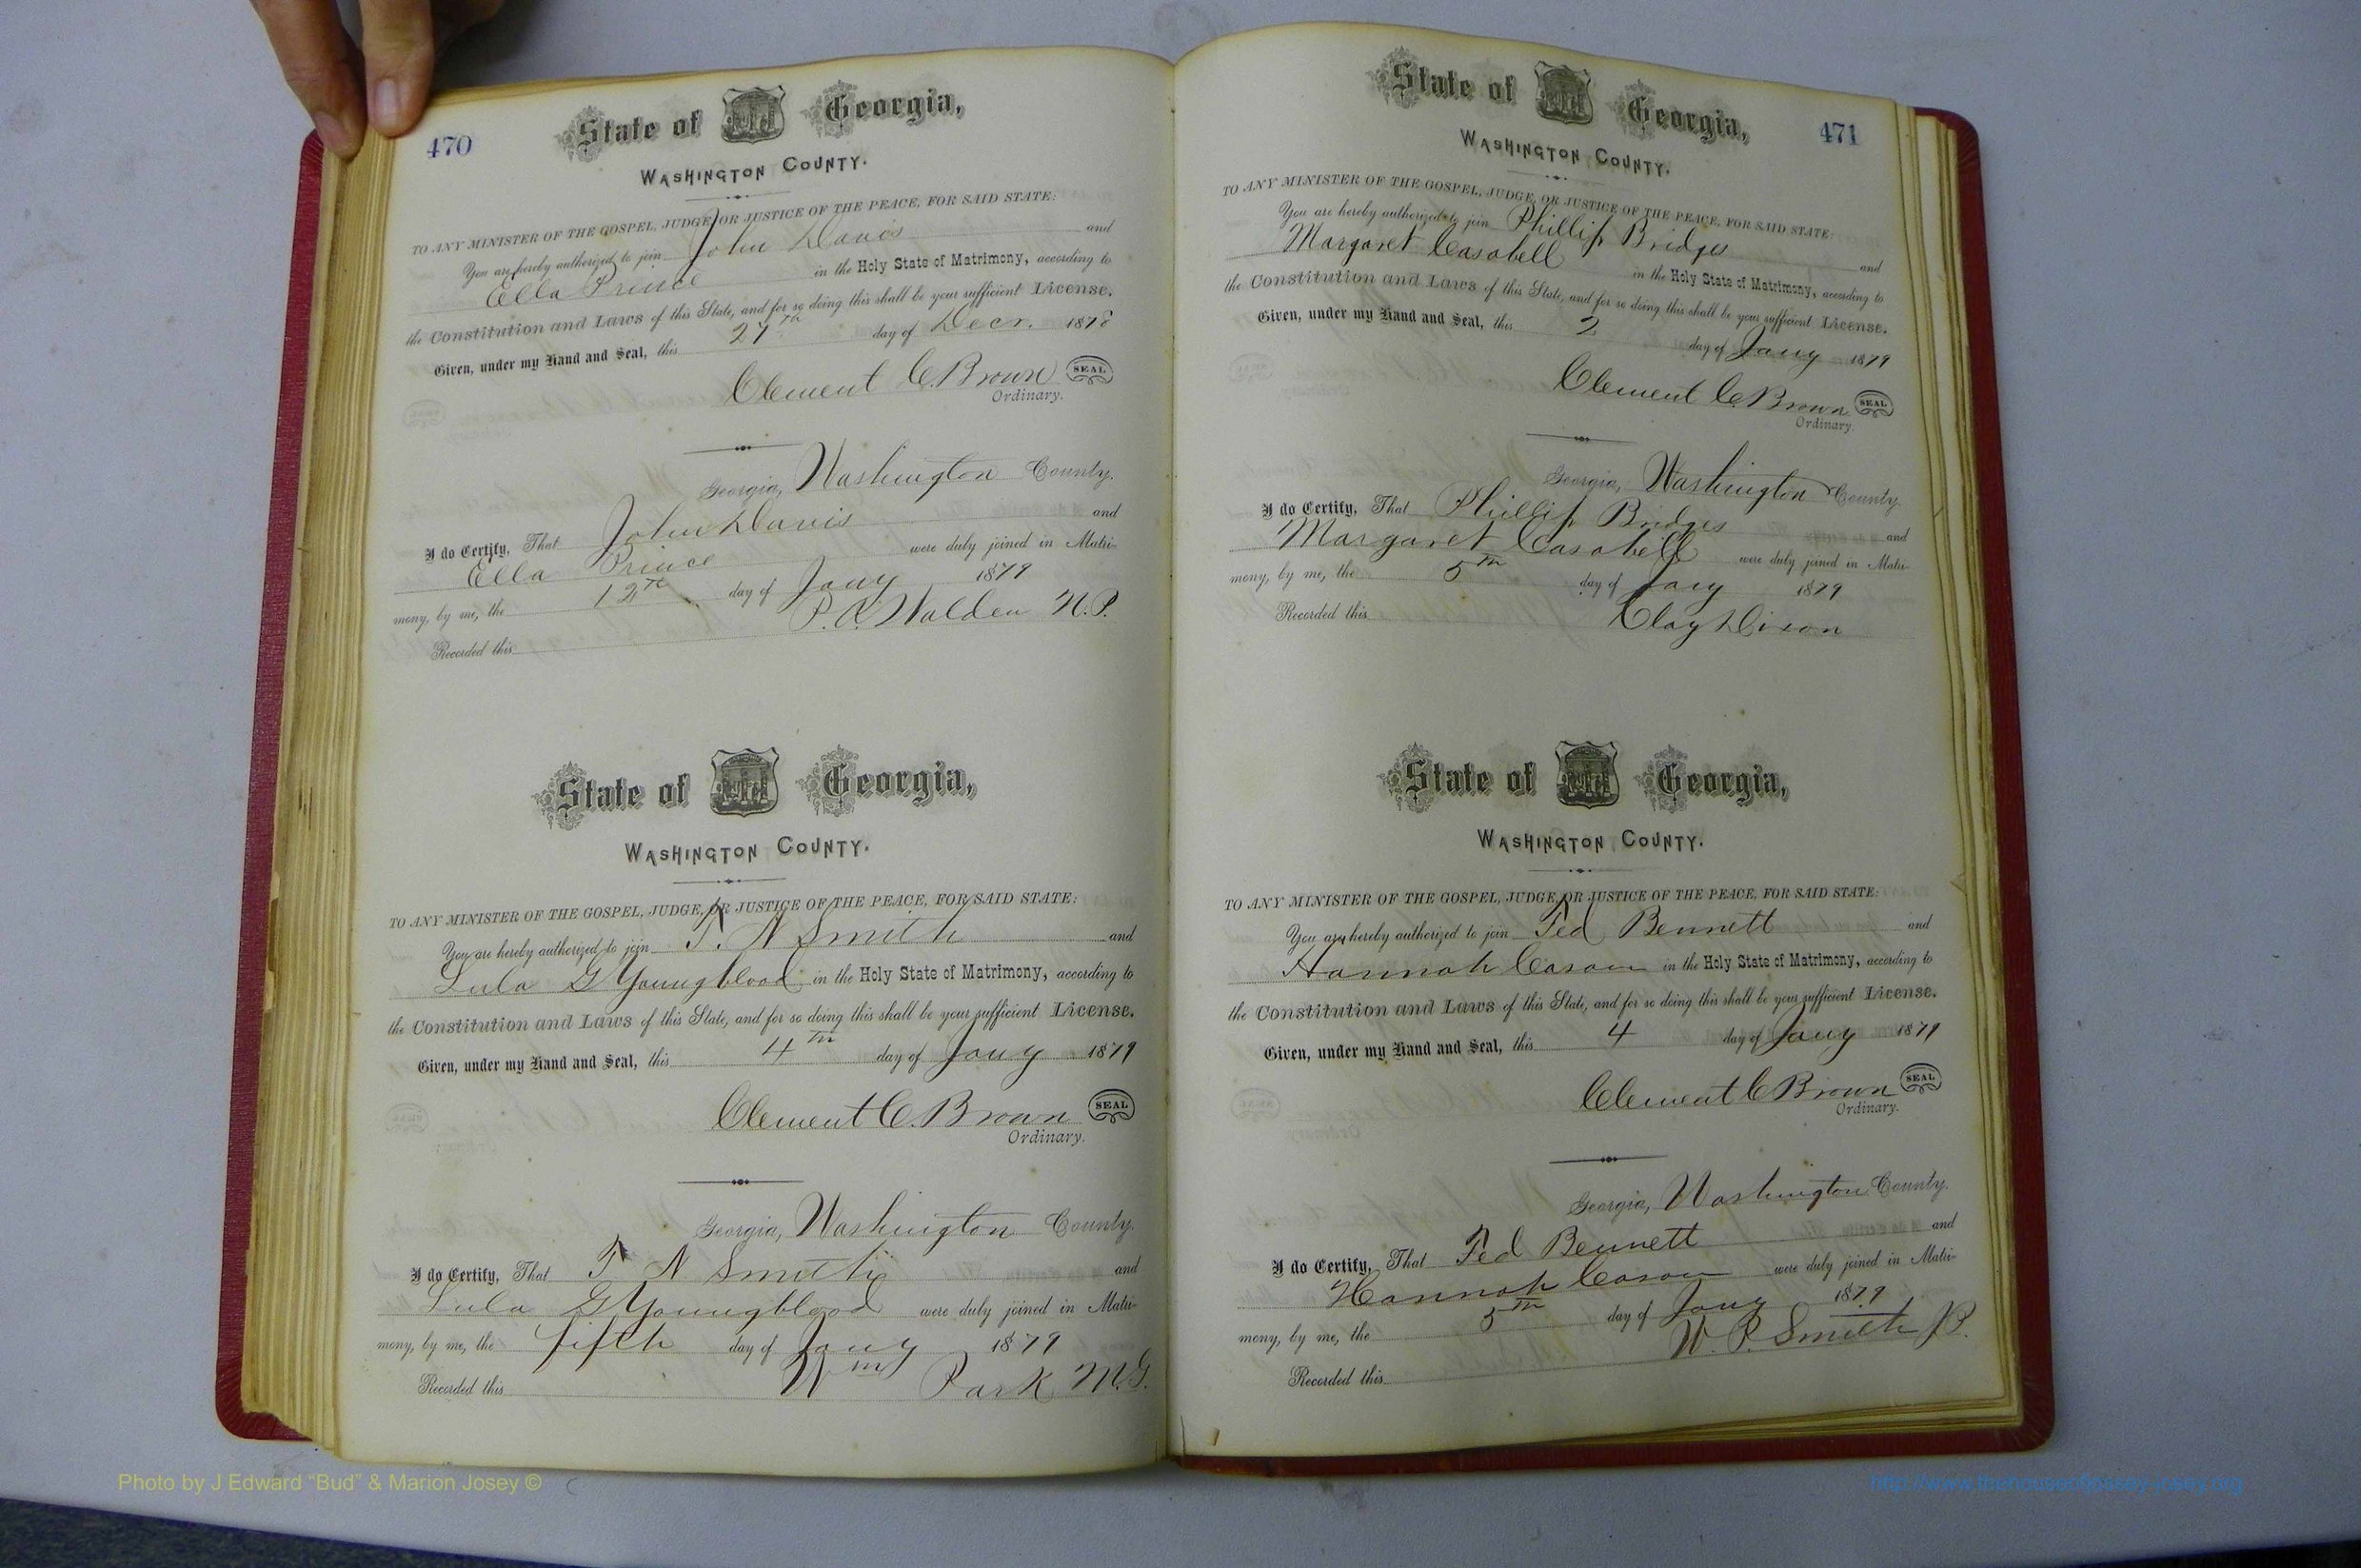 470
State of Georgia,
WASHINGTON COUNTY.
TO ANY MINISTER OF THE GOSPEL, JUDGE, OR JUSTICE OF THE PEACE, FOR SAID STATE:
You are hereby authorized to join John Davis and
Ella Prince in the Holy State of Matrimony, according to
the Constitution and Laws of this State, and for so doing this shall be your sufficient License.
Given, under my Hand and Seal, this 27th day of Decr. 1878
Clement C. Brown SEAL
Ordinary.
Georgia, Washington County.
I do Certify, That John Davis and
Ella Prince were duly joined in Matri-
mony, by me, the 12th day of Jany 1879
Recorded this P. R. Walden N. P.
State of Georgia,
WASHINGTON COUNTY.
TO ANY MINISTER OF THE GOSPEL, JUDGE, OR JUSTICE OF THE PEACE, FOR SAID STATE:
You are hereby authorized to join T. N Smith and
Lula G Youngblood in the Holy State of Matrimony, according to
the Constitution and Laws of this State, and for so doing this shall be your sufficient License.
Given, under my Hand and Seal, this 4th day of Jany 1879
Clement C. Brown SEAL
Ordinary.
Georgia, Washington County.
I do Certify, That T N Smith and
Lula G Youngblood were duly joined in Matri-
mony, by me, the fifth day of Jany 1879
Recorded this Wm Park M.G.
471
State of Georgia,
WASHINGTON COUNTY.
TO ANY MINISTER OF THE GOSPEL, JUDGE, OR JUSTICE OF THE PEACE, FOR SAID STATE:
You are hereby authorized to join Phillip Bridges and
Margaret Casabell in the Holy State of Matrimony, according to
the Constitution and Laws of this State, and for so doing this shall be your sufficient License.
Given, under my Hand and Seal, this 2 day of Jany 1879
Clement C. Brown SEAL
Ordinary.
Georgia, Washington County.
I do Certify, That Phillip Bridges and
Margaret Casabell were duly joined in Matri-
mony, by me, the 5th day of Jany 1879
Recorded this Clay Dixon
State of Georgia,
WASHINGTON COUNTY.
TO ANY MINISTER OF THE GOSPEL, JUDGE, OR JUSTICE OF THE PEACE, FOR SAID STATE:
You are hereby authorized to join Ted Bennett and
Hannah Cason in the Holy State of Matrimony, according to
the Constitution and Laws of this State, and for so doing this shall be your sufficient License.
Given, under my Hand and Seal, this 4 day of Jany 1879
Clement C Brown SEAL
Ordinary.
Georgia, Washington County.
I do Certify, That Ted Bennett and
Hannah Cason were duly joined in Matri-
mony, by me, the 5th day of Jany 1879
Recorded this W. P. Smith
Photo by J Edward “Bud” & Marion Josey ©